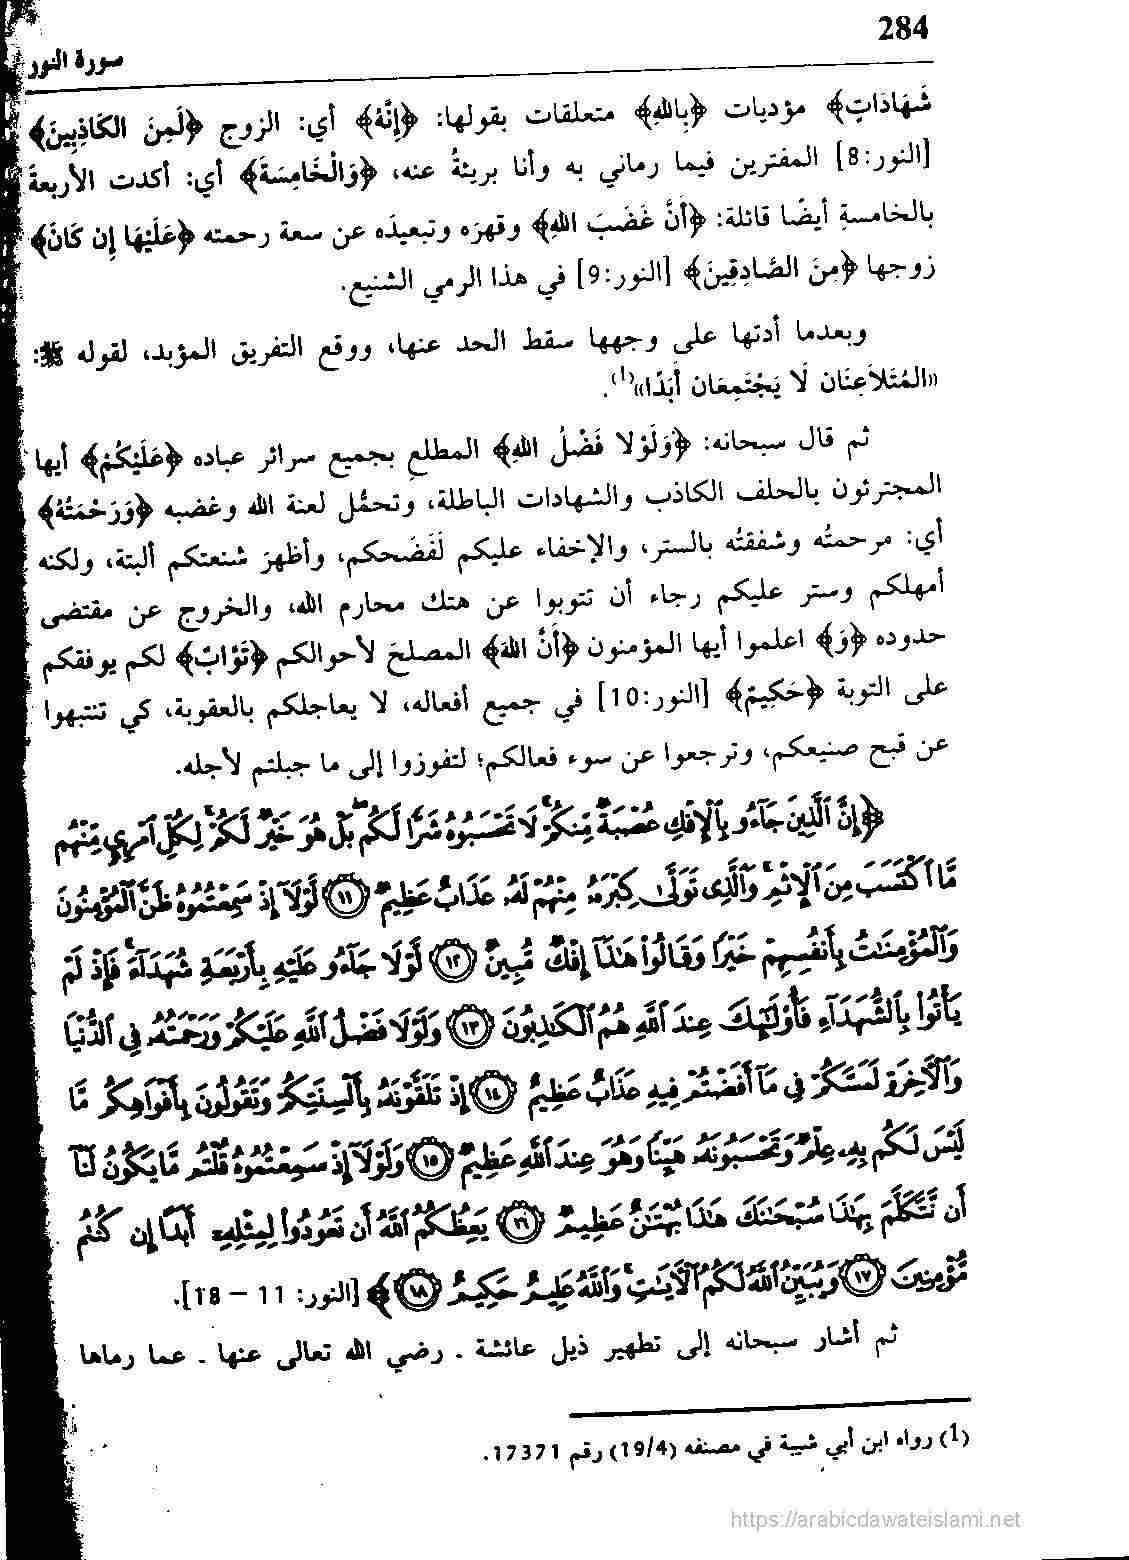 284
سورة النور
شَهَادَاتٍ﴾ مؤديات ﴿بِاللهِ﴾ متعلقات بقولها: ﴿إِنَّهُ﴾ أي: الزوج ﴿لَمِنَ الكَاذِبِينَ﴾
[النور:8] المفترين فيما رماني به وأنا بريئةُ عنه، ﴿وَالْخَامِسَةَ﴾ أي: أكدت الأربعةَ
بالخامسةِ أيضًا قائلة: ﴿أَنَّ غَضَبَ اللهِ﴾ وقهرَه وتبعيدَه عن سعة رحمته ﴿عَلَيْهَا إِن كَانَ﴾
زوجها ﴿مِنَ الصَّادِقِينَ﴾ [النور:9] في هذا الرمي الشنيع.
وبعدما أدتها على وجهها سقط الحد عنها، ووقع التفريق المؤبد، لقوله ﷺ:
«المُتَلاَعِنَان لَا يَجْتَمِعَان أَبَدًا»(1).
ثم قال سبحانه: ﴿وَلَوْلا فَضْلُ اللهِ﴾ المطلعِ بجميع سرائر عباده ﴿عَلَيْكُمْ﴾ أيها
المجترئون بالحلف الكاذب والشهادات الباطلة، وتحمُّل لعنة الله وغضبه ﴿وَرَحْمَتُهُ﴾
أي: مرحمتُه وشفقتُه بالستر، والإخفاء عليكم لَفَضَحكم، وأظهرَ شنعتكم ألبتة، ولكنه
أمهلكم وستر عليكم رجاء أن تتوبوا عن هتك محارم الله، والخروج عن مقتضى
حدوده ﴿وَ﴾ اعلموا أيها المؤمنون ﴿أَنَّ اللهَ﴾ المصلحَ لأحوالكم ﴿تَوَّابٌ﴾ لكم يوفقكم
على التوبة ﴿حَكِيمٌ﴾ [النور:10] في جميع أفعاله، لا يعاجلكم بالعقوبة، كي تنتبهوا
عن قبح صنيعكم، وترجعوا عن سوء فعالكم؛ لتفوزوا إلى ما جبلتم لأجله.
﴿إِنَّ ٱلَّذِينَ جَآءُو بِٱلْإِفْكِ عُصْبَةٌ مِّنكُمْ ۚ لَا تَحْسَبُوهُ شَرًّا لَّكُم ۖ بَلْ هُوَ خَيْرٌ لَّكُمْ ۚ لِكُلِّ ٱمْرِئٍ مِّنْهُم
مَّا ٱكْتَسَبَ مِنَ ٱلْإِثْمِ ۚ وَٱلَّذِى تَوَلَّىٰ كِبْرَهُۥ مِنْهُمْ لَهُۥ عَذَابٌ عَظِيمٌ ١١ لَّوْلَآ إِذْ سَمِعْتُمُوهُ ظَنَّ ٱلْمُؤْمِنُونَ
وَٱلْمُؤْمِنَـٰتُ بِأَنفُسِهِمْ خَيْرًا وَقَالُوا۟ هَـٰذَآ إِفْكٌ مُّبِينٌ ١٢ لَّوْلَا جَآءُو عَلَيْهِ بِأَرْبَعَةِ شُهَدَآءَ ۚ فَإِذْ لَمْ
يَأْتُوا۟ بِٱلشُّهَدَآءِ فَأُو۟لَـٰٓئِكَ عِندَ ٱللَّهِ هُمُ ٱلْكَـٰذِبُونَ ١٣ وَلَوْلَا فَضْلُ ٱللَّهِ عَلَيْكُمْ وَرَحْمَتُهُۥ فِى ٱلدُّنْيَا
وَٱلْـَٔاخِرَةِ لَمَسَّكُمْ فِى مَآ أَفَضْتُمْ فِيهِ عَذَابٌ عَظِيمٌ ١٤ إِذْ تَلَقَّوْنَهُۥ بِأَلْسِنَتِكُمْ وَتَقُولُونَ بِأَفْوَاهِكُم مَّا
لَيْسَ لَكُم بِهِۦ عِلْمٌ وَتَحْسَبُونَهُۥ هَيِّنًا وَهُوَ عِندَ ٱللَّهِ عَظِيمٌ ١٥ وَلَوْلَآ إِذْ سَمِعْتُمُوهُ قُلْتُم مَّا يَكُونُ لَنَآ
أَن نَّتَكَلَّمَ بِهَـٰذَا سُبْحَـٰنَكَ هَـٰذَا بُهْتَـٰنٌ عَظِيمٌ ١٦ يَعِظُكُمُ ٱللَّهُ أَن تَعُودُوا۟ لِمِثْلِهِۦٓ أَبَدًا إِن كُنتُم
مُّؤْمِنِينَ ١٧ وَيُبَيِّنُ ٱللَّهُ لَكُمُ ٱلْـَٔايَـٰتِ ۚ وَٱللَّهُ عَلِيمٌ حَكِيمٌ ١٨﴾ [النور: 11 – 18].
ثم أشار سبحانه إلى تطهير ذيل عائشة ـ رضي الله تعالى عنها ـ عما رماها
(1) رواه ابن أبي شيبة في مصنفه (19/4) رقم 17371.
https://arabicdawateislami.net